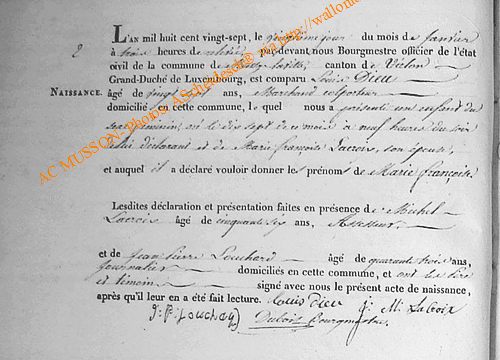 L'AN mil huit cent vingt-sept, le jour du mois de janvier
2 à trois heures de relevée par-devant nous Bourgmestre officier de l'état
civil de la commune de canton de Vielsalm
NAISSANCE. Grand-Duché de Luxembourg, est comparu Louis Dieu
âgé de vingt ans, Marchand colporteur
domicilié en cette commune, lequel nous a présenté un enfant du
sexe féminin, né le dix sept de ce mois à neuf heures du soir
de lui déclarant et de Marie françoise Lacroix, son épouse,
et auquel il a déclaré vouloir donner les prénoms de Marie françoise
Lesdites déclaration et présentation faites en présence de Michel
Lacroix âgé de cinquante six ans, Assesseur
et de Jean Pierre Louchard âgé de quarante trois ans,
journalier domiciliés en cette commune, et ont le père
et témoin signé avec nous le présent acte de naissance,
après qu'il leur en a été fait lecture. Louis Dieu j: M: LaCroix
j: P: Louchag Dubois Bourgmestre
AC MUSSON- Photos http://wallonie